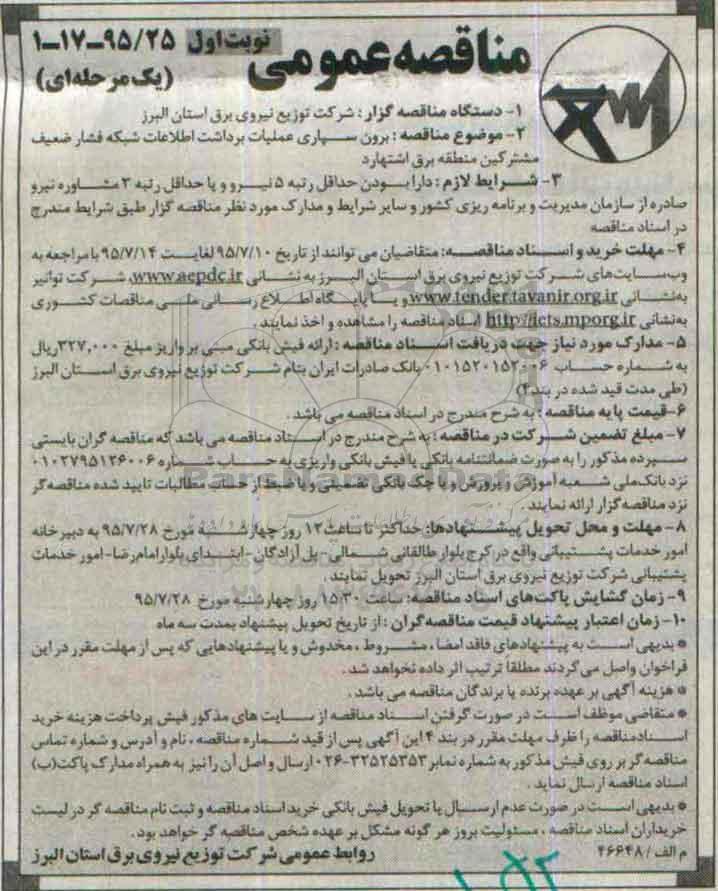 مناقصه عمومی نوبت اول ۹۵/۲۵-۱۷-۱
(یک مرحله‌ای)
۱- دستگاه مناقصه گزار : شرکت توزیع نیروی برق استان البرز
۲- موضوع مناقصه : برون سپاری عملیات برداشت اطلاعات شبکه فشار ضعیف
مشترکین منطقه برق اشتهارد
۳- شرایط لازم : دارا بودن حداقل رتبه ۵ نیرو و یا حداقل رتبه ۳ مشاوره نیرو
صادره از سازمان مدیریت و برنامه ریزی کشور و سایر شرایط و مدارک مورد نظر مناقصه گزار طبق شرایط مندرج
در اسناد مناقصه
۴- مهلت خرید و اسناد مناقصه : متقاضیان می توانند از تاریخ ۹۵/۷/۱۰ لغایت ۹۵/۷/۱۴ با مراجعه به
وب‌سایت‌های شرکت توزیع نیروی برق استان البرز به نشانی www.aepdc.ir، شرکت توانیر
به‌نشانی www.tender.tavanir.org.ir و یا پایگاه اطلاع رسانی ملی مناقصات کشوری
به‌نشانی http://iets.mporg.ir اسناد مناقصه را مشاهده و اخذ نمایند .
۵- مدارک مورد نیاز جهت دریافت اسناد مناقصه : ارائه فیش بانکی مبنی بر واریز مبلغ ۳۲۷,۰۰۰ ریال
به شماره حساب ۰۱۰۱۵۲۰۱۵۲۰۰۶ بانک صادرات ایران بنام شرکت توزیع نیروی برق استان البرز
(طی مدت قید شده در بند ۴)
۶-قیمت پایه مناقصه : به شرح مندرج در اسناد مناقصه می باشد .
۷- مبلغ تضمین شرکت در مناقصه : به شرح مندرج در اسناد مناقصه می باشد که مناقصه گران بایستی
سپرده مذکور را به صورت ضمانتنامه بانکی یا فیش بانکی واریزی به حساب شماره ۰۱۰۲۷۹۵۱۳۶۰۰۶
نزد بانک ملی شعبه آموزش و پرورش و یا چک بانکی تضمینی و یا ضبط از حساب مطالبات تایید شده مناقصه گر
نزد مناقصه گزار ارائه نمایند .
۸- مهلت و محل تحویل پیشنهادها: حداکثر تا ساعت ۱۲ روز چهارشنبه مورخ ۹۵/۷/۲۸ به دبیرخانه
امور خدمات پشتیبانی واقع در کرج بلوار طالقانی شمالی- پل آزادگان- ابتدای بلوار امام رضا- امور خدمات
پشتیبانی شرکت توزیع نیروی برق استان البرز تحویل نمایند .
۹- زمان گشایش پاکت‌های اسناد مناقصه: ساعت ۱۵:۳۰ روز چهارشنبه مورخ ۹۵/۷/۲۸
۱۰- زمان اعتبار پیشنهاد قیمت مناقصه گران : از تاریخ تحویل پیشنهاد بمدت سه ماه
* بدیهی است به پیشنهادهای فاقد امضا ، مشروط ، مخدوش و یا پیشنهادهایی که پس از مهلت مقرر در این
فراخوان واصل می گردند مطلقا ترتیب اثر داده نخواهد شد .
* هزینه آگهی بر عهده برنده یا برندگان مناقصه می باشد .
* متقاضی موظف است در صورت گرفتن اسناد مناقصه از سایت های مذکور فیش پرداخت هزینه خرید
اسناد مناقصه را ظرف مهلت مقرر در بند ۴ این آگهی پس از قید شماره مناقصه ، نام و آدرس و شماره تماس
مناقصه گر بر روی فیش مذکور به شماره نمابر ۳۲۵۲۵۳۵۳-۰۲۶ ارسال و اصل آن را نیز به همراه مدارک پاکت (ب)
اسناد مناقصه ارسال نماید .
* بدیهی است در صورت عدم ارسال یا تحویل فیش بانکی خرید اسناد مناقصه و ثبت نام مناقصه گر در لیست
خریداران اسناد مناقصه ، مسئولیت بروز هر گونه مشکل بر عهده شخص مناقصه گر خواهد بود .
م الف / ۴۶۶۴۸ روابط عمومی شرکت توزیع نیروی برق استان البرز